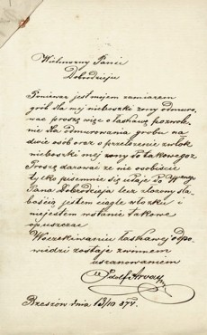 Wielmożny Panie
Dobrodzieju
Ponieważ jest mojem zamiarem
grób dla mej nieboszki żony odmuro
wać proszę więc o łaskawe pozwole
nie dla odmurowania grobu na
dwie osób oraz o przełożenie zwłok
nieboszki mej żony do takowego.
Proszę darować że nie osobiście
tylko pisemnie się udaję do
Pana Dobrodzieja lecz złożony sła
bością jestem ciągle w łóżku i
niejestem wstanie takowe
opuszczać
Woczekiwaniu łaskawej odpo
wiedzi zostaję z winnem
uszanowaniem
Adolf
Rzeszów dnia 13/10 874.